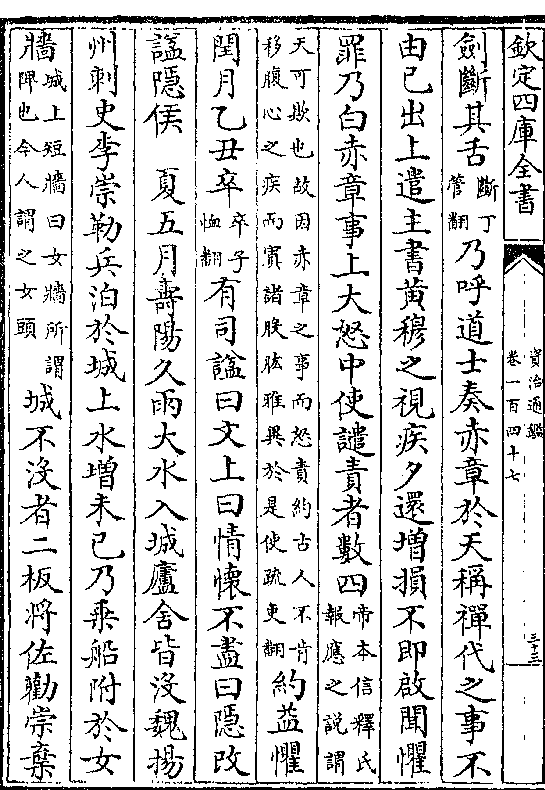 欽定四庫全書
資治通鑑
卷一百四十七
三十三
劍斷其舌斷丁管翻乃呼道士奏赤章於天稱禪代之事不
由己出上遣主書黃穆之視疾夕還增損不即啟聞懼
罪乃白赤章事上大怒中使譴責者數四帝本信釋氏報應之說謂
天可欺也故因赤章之事而怒責約古人不肯移腹心之疾而寘諸股肱雅異於是使疏吏翻約益懼
閏月乙丑卒卒子恤翻有司諡曰文上曰情懷不盡曰隱改
諡隱侯　夏五月壽陽久雨大水入城廬舍皆沒魏揚
州刺史李崇勒兵泊於城上水增未已乃乘船附於女
牆城上短牆曰女牆所謂陴也今人謂之女頭城不沒者二板將佐勸崇棄